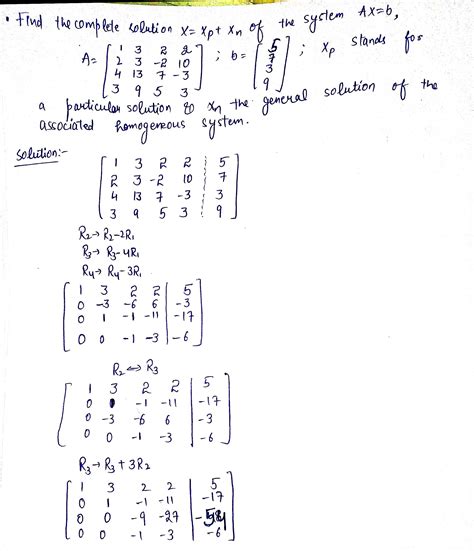 • Find the complete solution x = xp + xn of the system Ax=b,
A= [ 1 3 2 2 ; b= [ 5 ; xp stands for
2 3 -2 10 7
4 13 7 -3 3
3 9 5 3 ] 9 ]
a particular solution & xn the general solution of the
associated homogeneous system.
solution:-
[ 1 3 2 2 5
2 3 -2 10 7
4 13 7 -3 3
3 9 5 3 9 ]
R2→ R2-2R1
R3→ R3-4R1
R4→ R4-3R1
[ 1 3 2 2 | 5
0 -3 -6 6 | -3
0 1 -1 -11 | -17
0 0 -1 -3 | -6 ]
R2 ↔ R3
[ 1 3 2 2 | 5
0 1 -1 -11 | -17
0 -3 -6 6 | -3
0 0 -1 -3 | -6 ]
R3→ R3 + 3R2
[ 1 3 2 2 | 5
0 1 -1 -11 | -17
0 0 -9 -27 | -54
0 0 -1 -3 | -6 ]